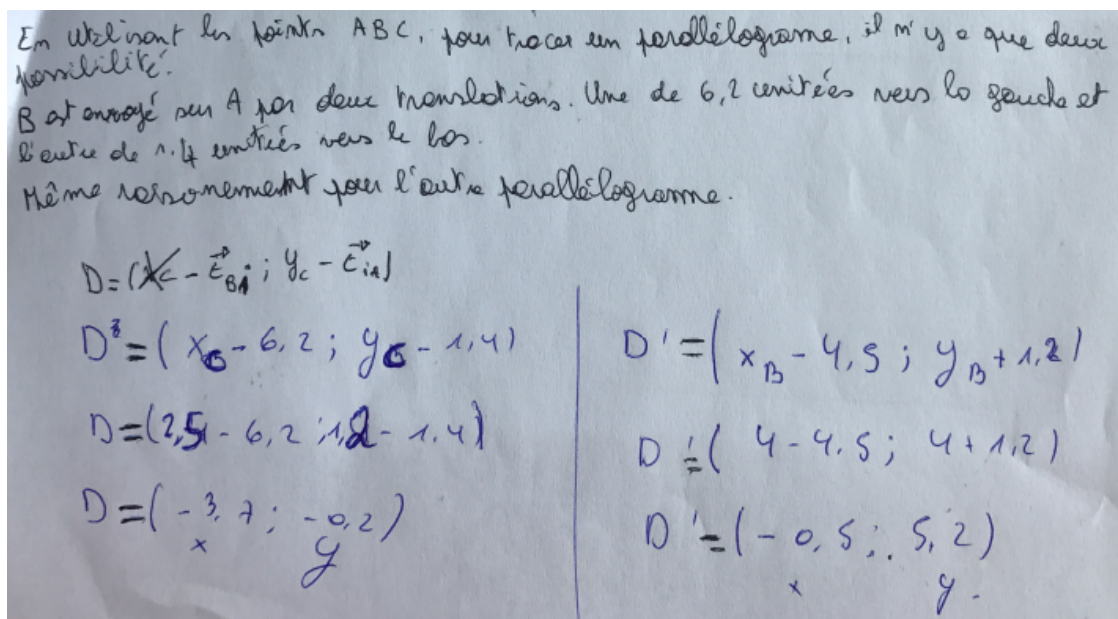 En utilisant les points ABC, pour tracer un parallélograme, il n'y a que deux
possibilité.
B est envoyé sur A par deux translations. Une de 6,2 unitées vers la gauche et
l'autre de 1.4 unitiés vers le bas.
Même raisonnement pour l'autre parallélogramme.
D=(
D=( x_C - 6,2 ; y_C - 1,4)
D=(2,5 - 6,2 ; 1,2 - 1,4)
D=(-3,7 ; -0,2)
x y
D'=( x_B - 4,5 ; y_B + 1,2)
D'=( 4 - 4,5 ; 4 + 1,2)
D'=(-0,5 ; 5,2)
x y.